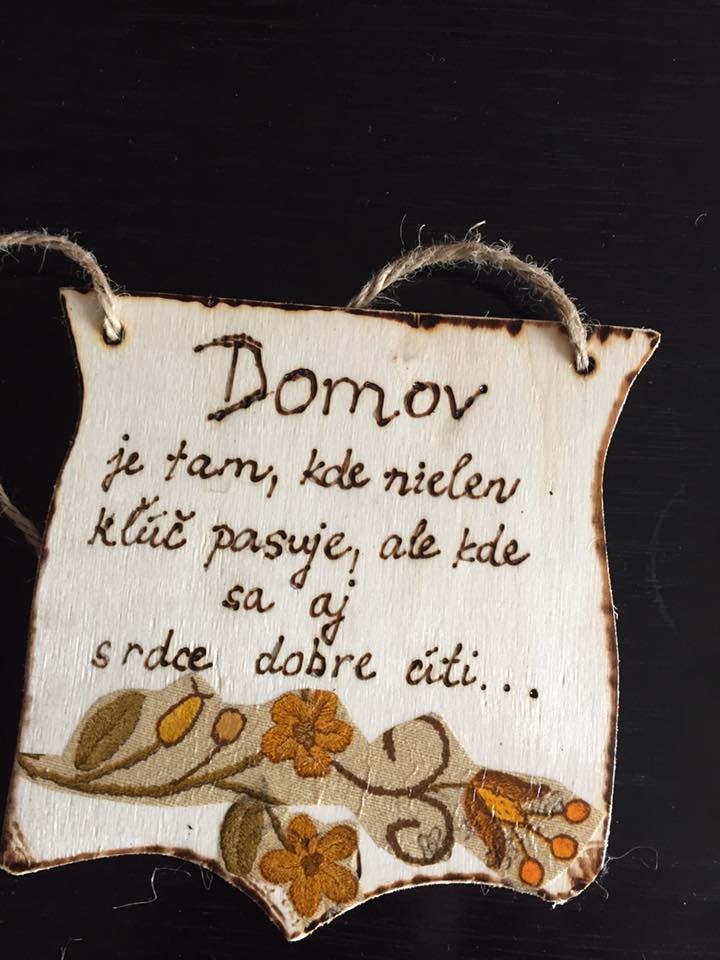 Domov
je tam, kde nielen
kľúč pasuje, ale kde
sa aj
srdce dobre cíti...